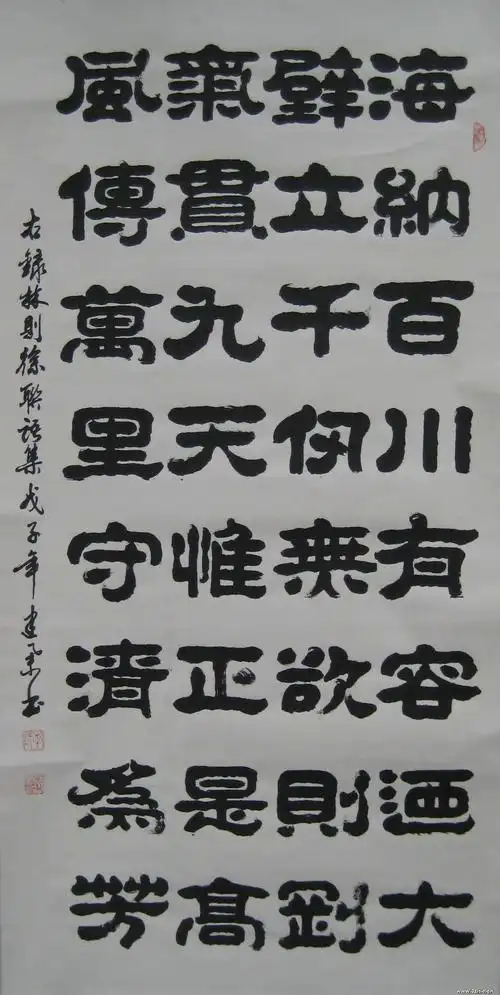 海納百川有容迺大
壁立千仞無欲則剛
氣貫九天惟正是高
風傳萬里守清為芳
右録林則徐聯語集戊子年建